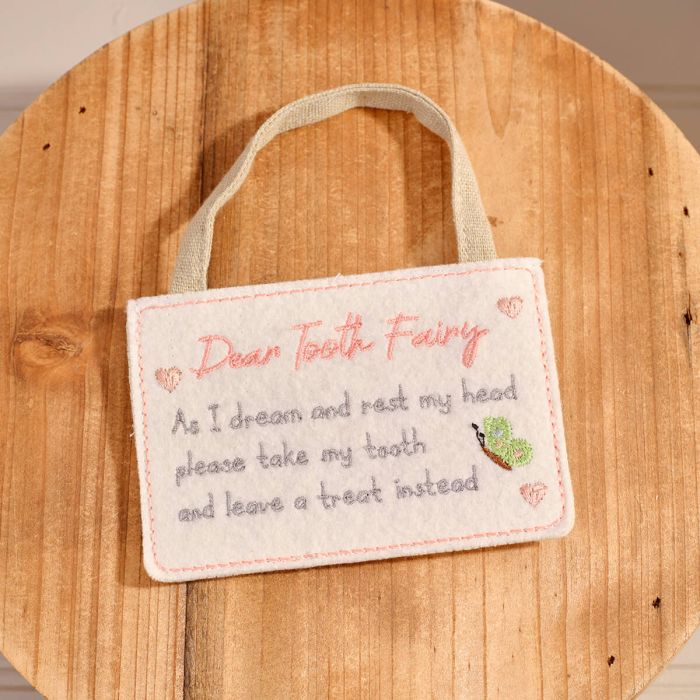 Dear Tooth Fairy
As I dream and rest my head
please take my tooth
and leave a treat instead